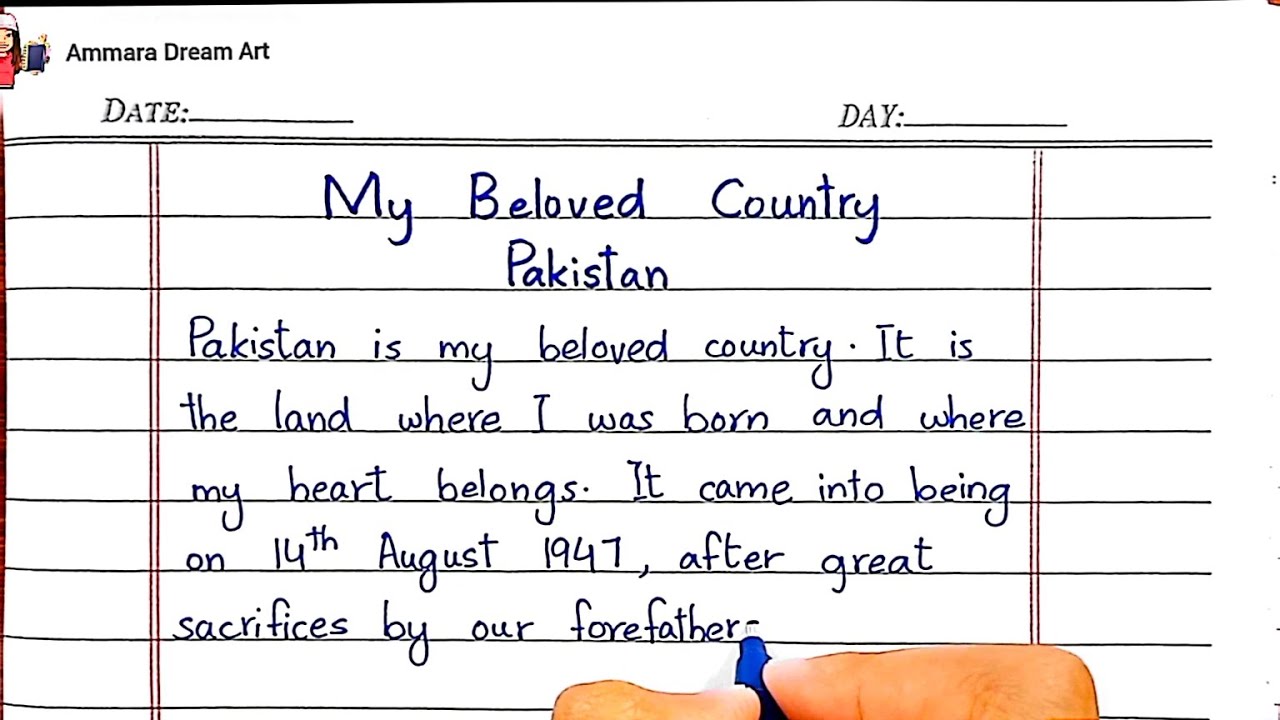 Ammara Dream Art
DATE: DAY:
My Beloved Country
Pakistan
Pakistan is my beloved country. It is
the land where I was born and where
my heart belongs. It came into being
on 14th August 1947, after great
sacrifices by our forefather